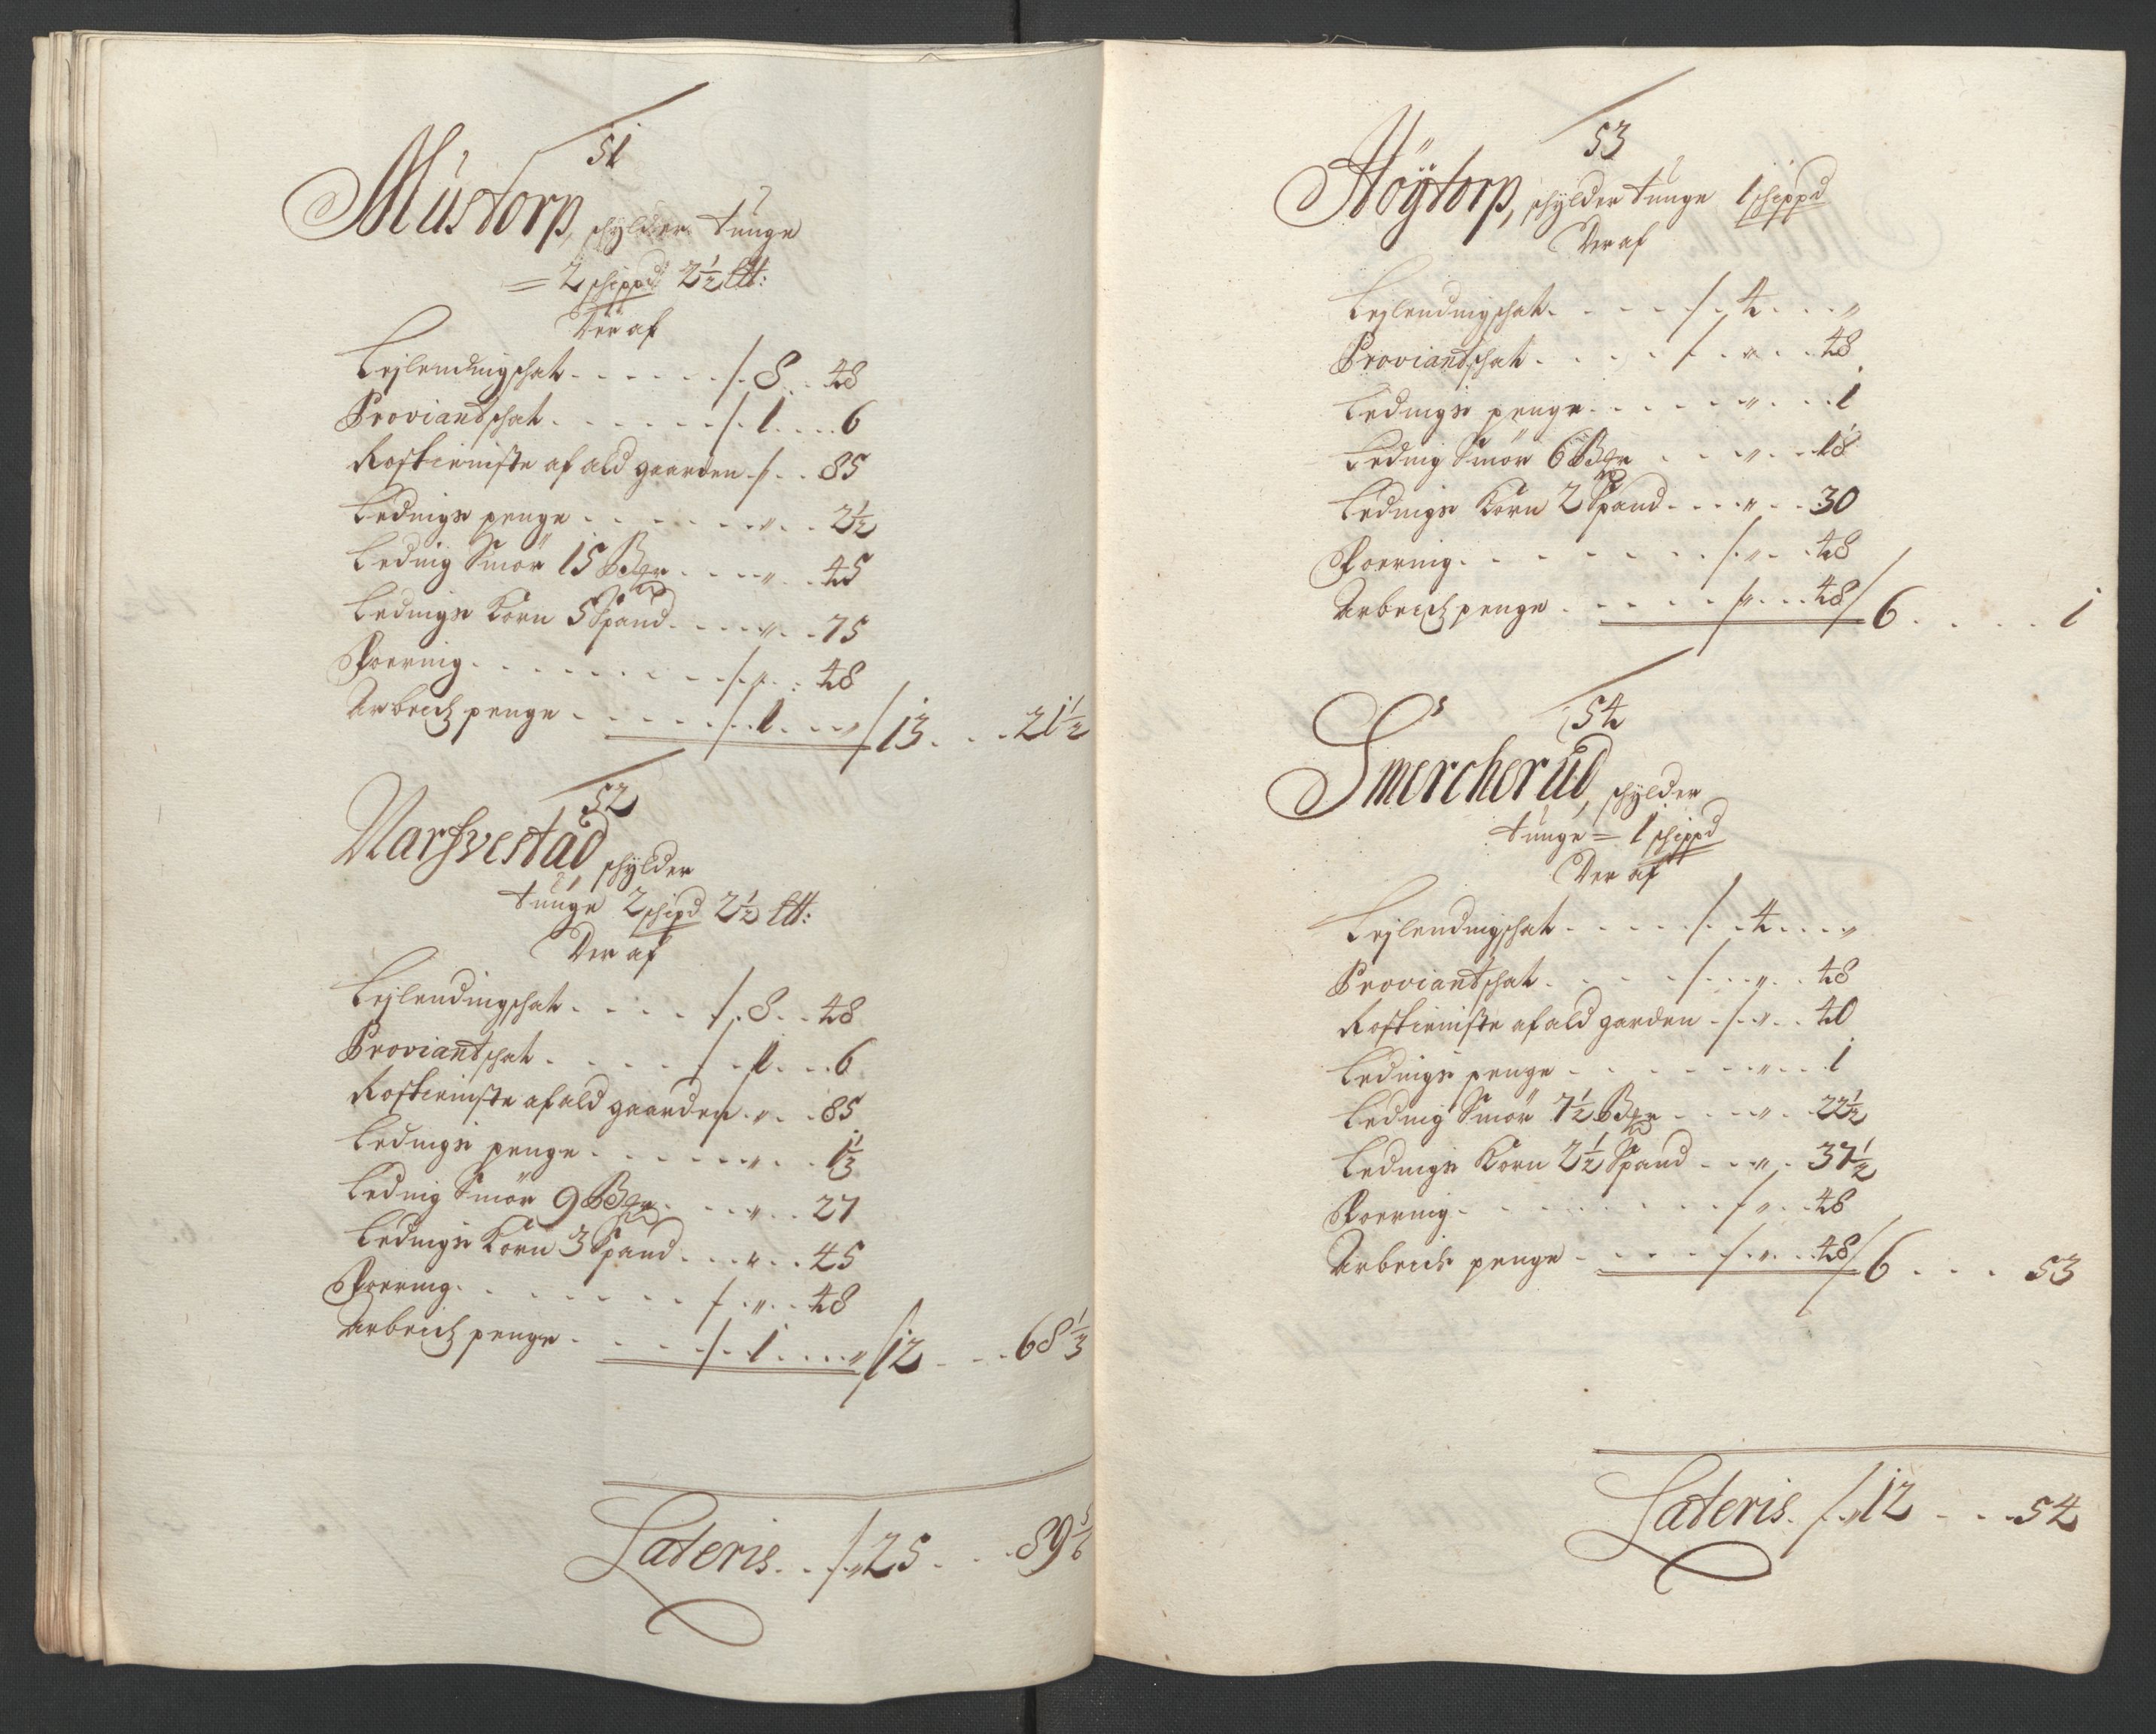 51
Mustorp, schylder tunge
= 2 schippd 2½ ltt:
Der af
Lejlendingschatt - - - - - - /. 8 . . 48
Proviandtschatt - - - - - - /. 1 . . . . 6
Rostieniste af ald gaarden . /. . . 85
Ledings penge - - - - - - - „ . . 2½
Leding Smör 15 Bgr - - - - „ . . 45
Ledings Korn 5 Spand . - - - „ . . 75
Foering . - - - - - - - /. „ . . 48
Arbeids penge - - - - - - /. 1 . . . „ / 13 . . . . 21½
52
Narfvestad schylder
tunge 2 schipd 2½ ltt:
Der af
Lejlendingschatt . - - - - /. 8 . . 48
Proviandtschatt . - - - - /. 1 . . . 6
Rostieniste af ald gaarden . „ . . 85
Ledings penge . - - - - - „ . . 1⅓
Leding Smör 9 Bgr . - - - „ . . 27
Ledings Korn 3 Spand . - - „ . . 45
Foering . - - - - - - /. „ . . 48
Arbeids penge . - - - - /. 1 . . . . „ / 12 - - - 68⅓
Lateris . . /. „ 25 - - - 89⅚
53
Höytorp, schylder tunge 1 schippd
Der af
Lejlendingschatt . - - - - /. 4 . . . „
Proviandtschatt . - - - - /. „ . . 48
Ledings penge . - - - - - „ . . . 1
Leding Smör 6 Bgr - - - „ . . 18
Ledings Korn 2 Spand . - - - „ . . 30
Foering . - - - - - - - /. „ . . 48
Arbeids penge . - - - - /. „ . . . 48 / 6 . . . . . 1
54
Smercherud, schylder
tunge = 1 schippd
Der af
Lejlendingschatt . - - - - /. 4 . . . „
Proviandtschatt . - - - - /. . „ . . 48
Rostieniste af ald garden . /. „ . . 40
Ledings penge - - - - - - - „ . . . 1
Leding Smör 7½ Bgr - - - - „ . . 22½
Ledings Korn 2½ Spand - - „ . 37½
Foering . - - - - - - - /. „ . . 48
Arbeids penge - - - - - /. „ . . 48 / 6 . . . . 53
Lateris . /. „ 12 - - - 54